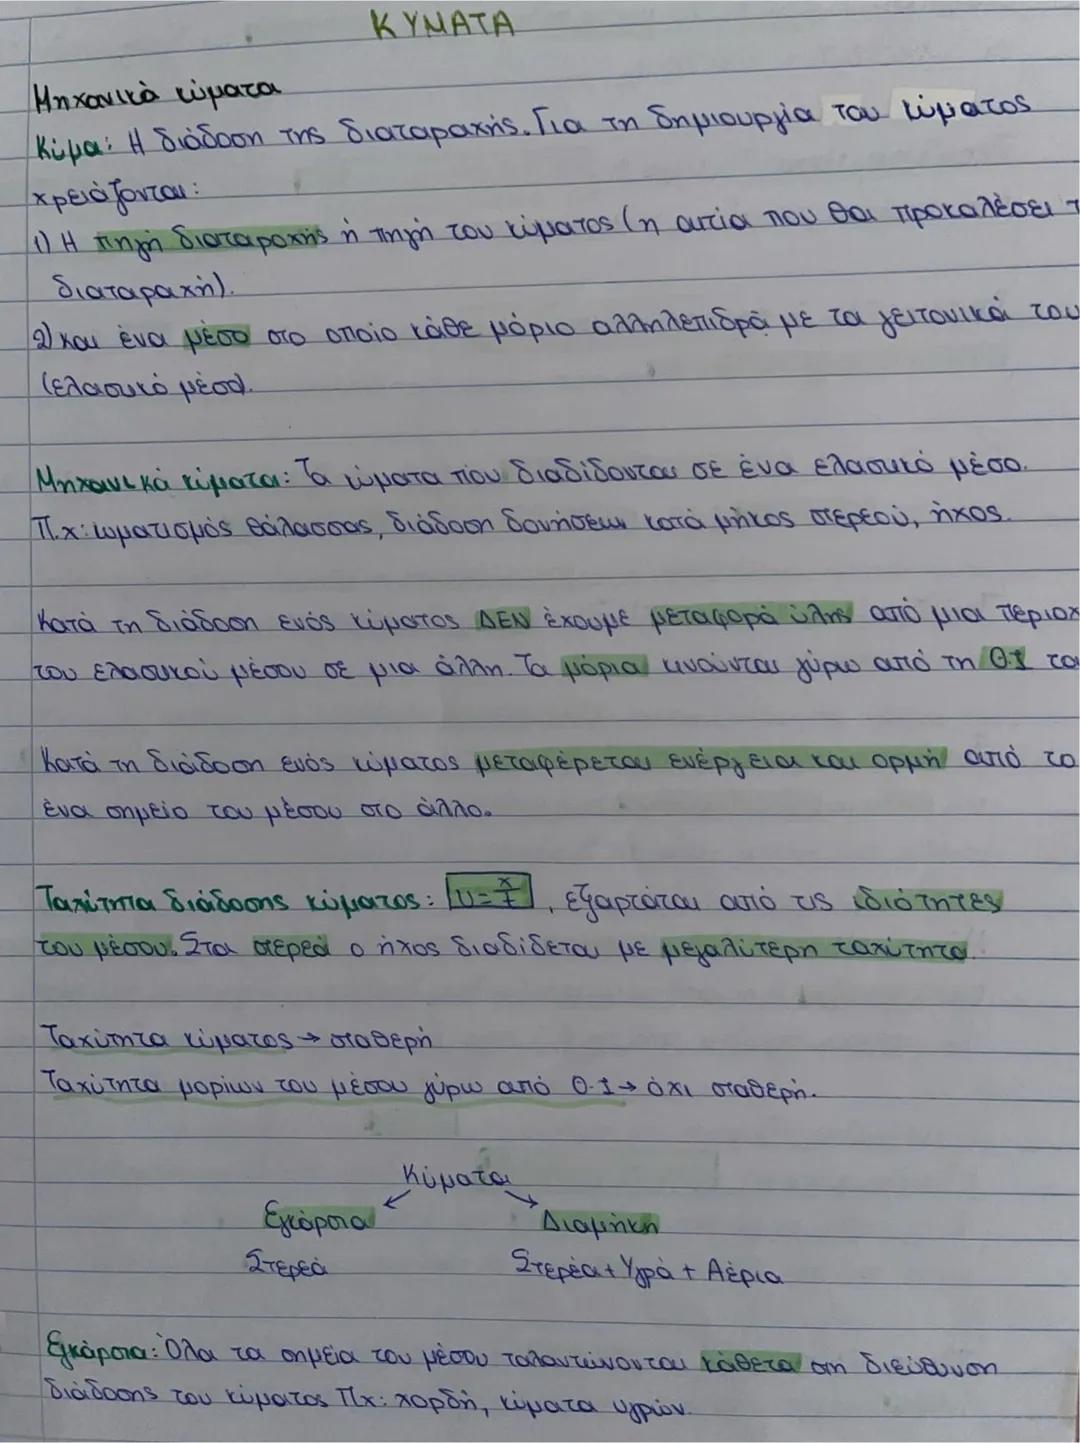 ΚΥΜΑΤΑ
Μηχανικά κύματα
Κύμα: Η διάδοση της διαταραχής. Για τη δημιουργία του κύματος
χρειάζονται:
1) Η πηγή διαταραχής ή πηγή του κύματος (η αιτία που θα προκαλέσει τ
διαταραχή).
2) και ένα μέσο στο οποίο κάθε μόριο αλληλεπιδρά με τα γειτονικά του
(ελαστικό μέσο).
Μηχανικά κύματα: Τα κύματα που διαδίδονται σε ένα ελαστικό μέσο.
Π.χ: κυματισμός θάλασσας, διάδοση δονήσεων κατά μήκος στερεού, ήχος.
Κατά τη διάδοση ενός κύματος ΔΕΝ έχουμε μεταφορά ύλης από μια περιοχ
του ελαστικού μέσου σε μια άλλη. Τα μόρια κινούνται γύρω από τη Θ.Ι το
Κατά τη διάδοση ενός κύματος μεταφέρεται ενέργεια και ορμή από το
ένα σημείο του μέσου στο άλλο.
Ταχύτητα διάδοσης κύματος: υ=x/t, εξαρτάται από τις ιδιότητες
του μέσου. Στα στερεά ο ήχος διαδίδεται με μεγαλύτερη ταχύτητα.
Ταχύτητα κύματος → σταθερή
Ταχύτητα μορίων του μέσου γύρω από Θ.Ι → όχι σταθερή.
Κύματα
Εγκάρσια Διαμήκη
Στερεά Στερέα + Υγρά + Αέρια
Εγκάρσια: Όλα τα σημεία του μέσου ταλαντώνονται κάθετα στη διεύθυνση
διάδοσης του κύματος Πχ: χορδή, κύματα υγρών.